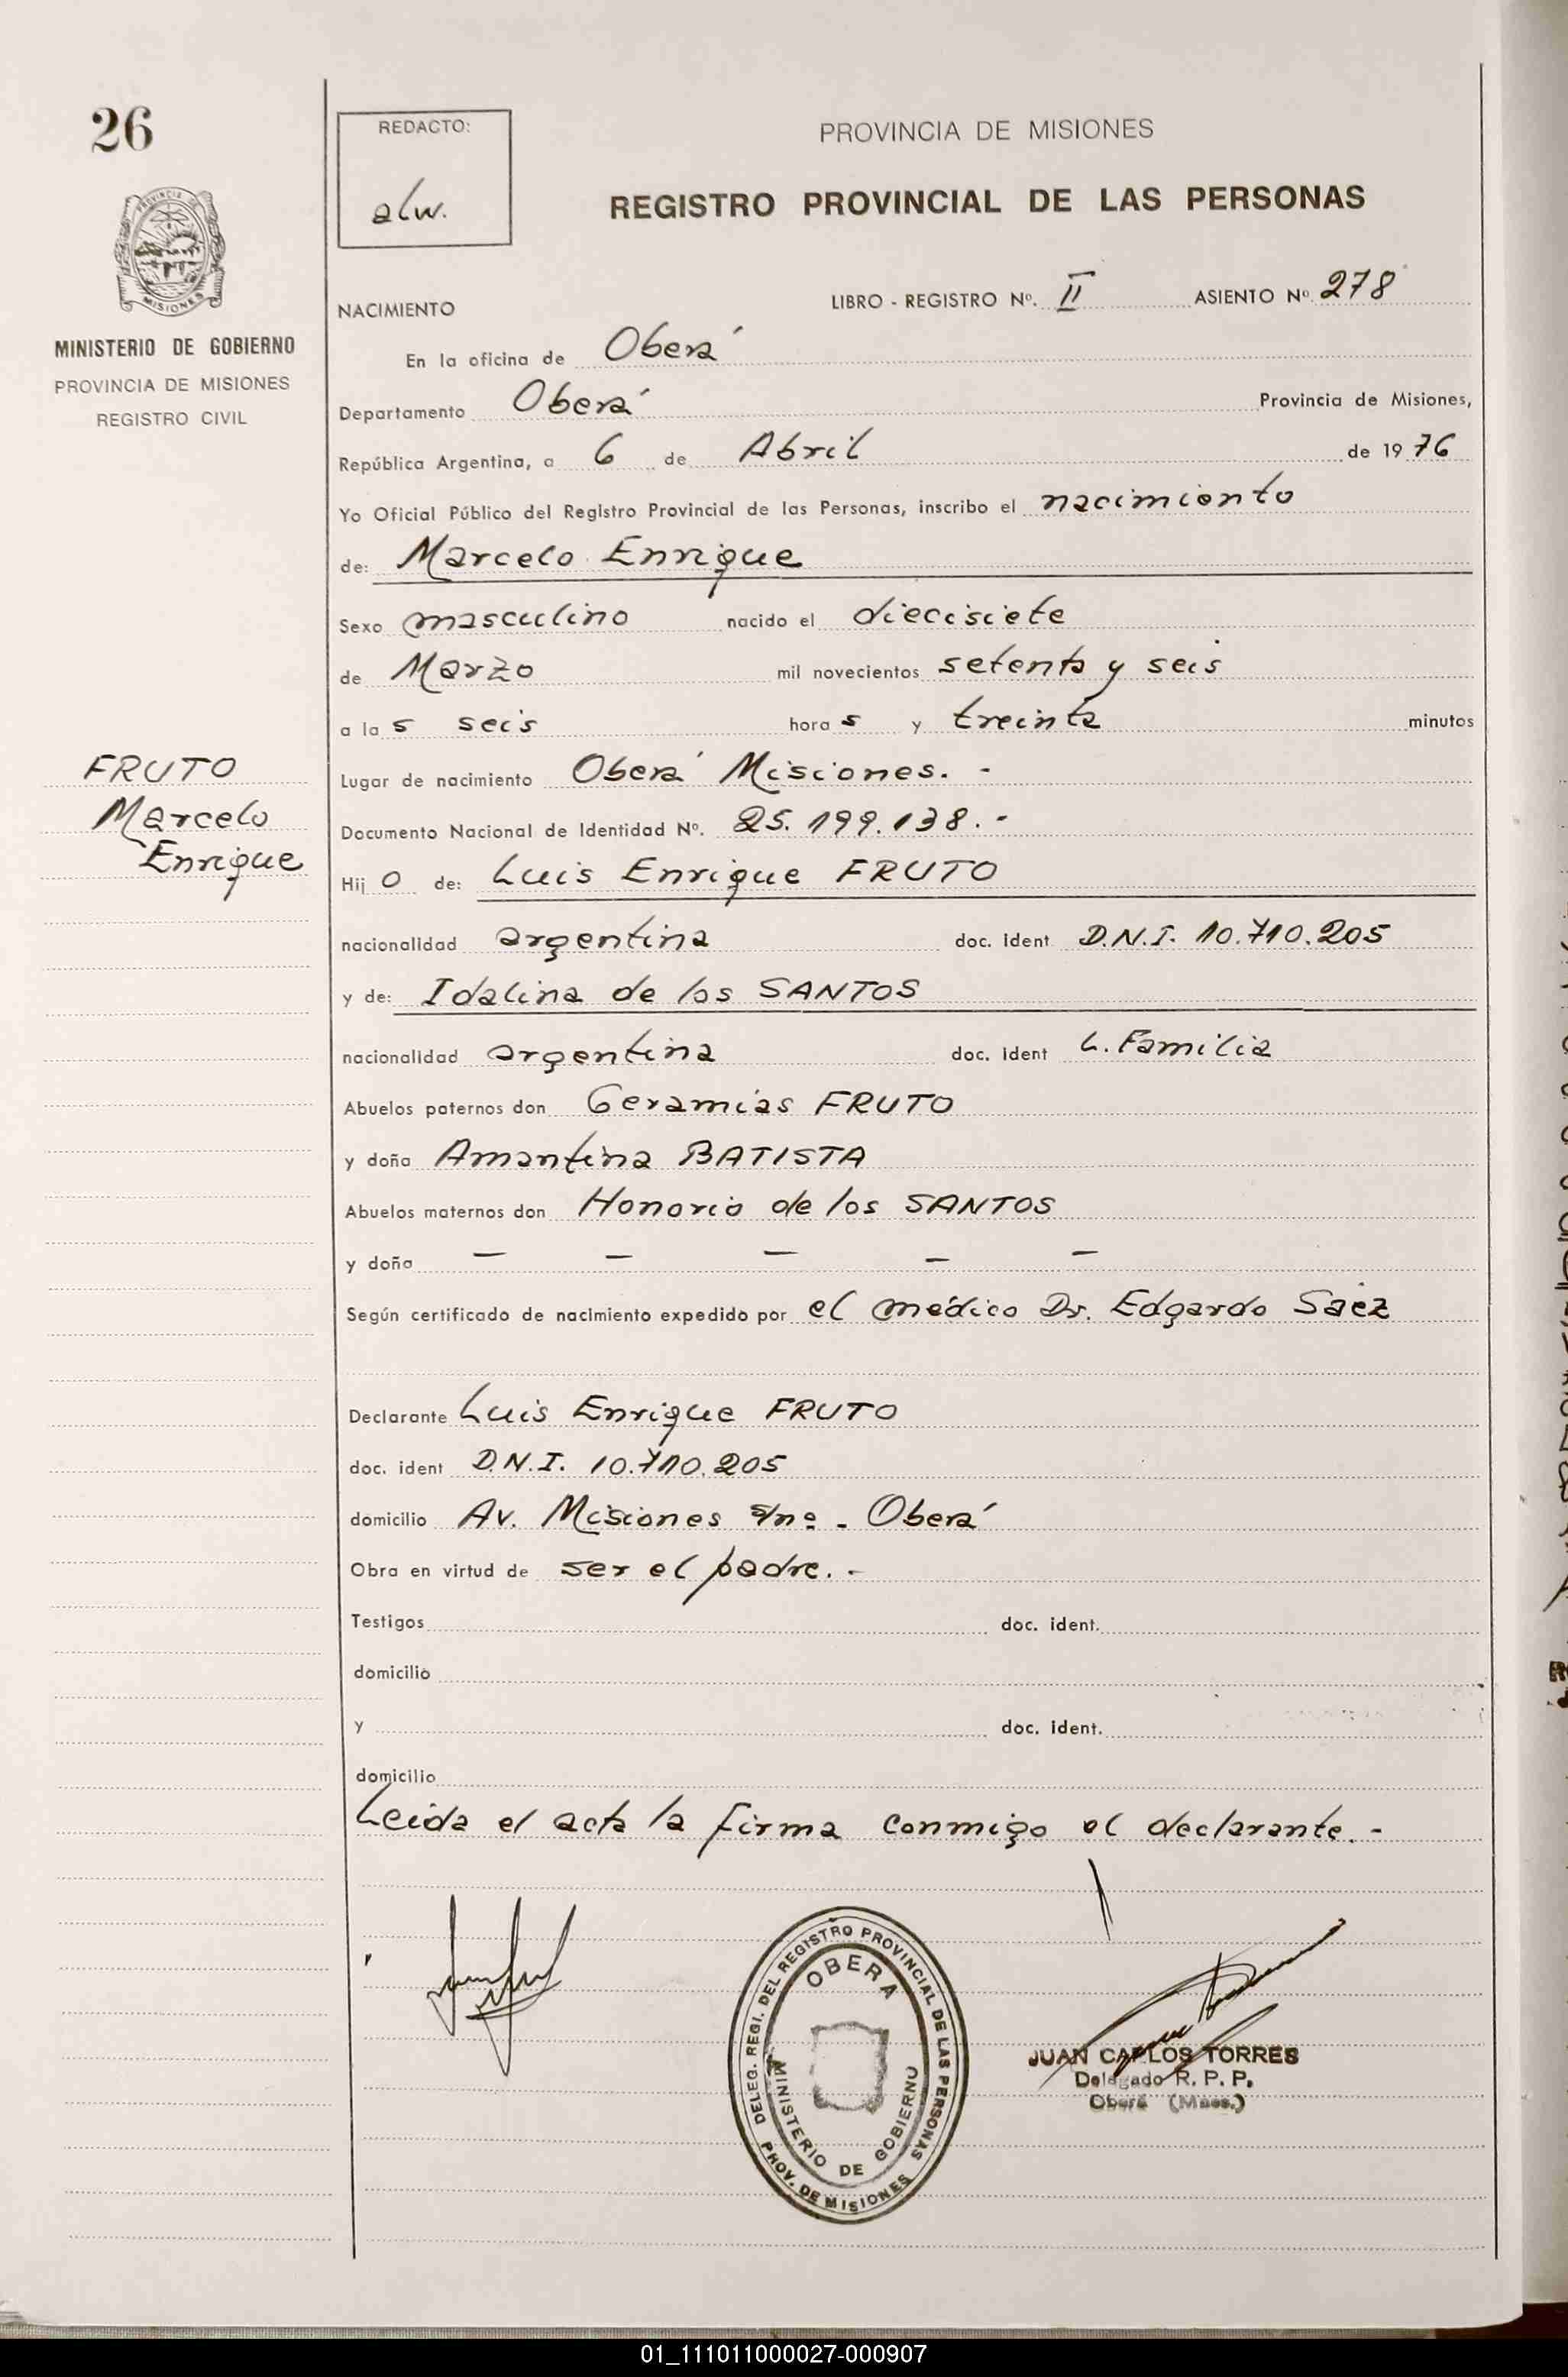 26
REDACTO:
alw.
PROVINCIA DE MISIONES
REGISTRO PROVINCIAL DE LAS PERSONAS
MISIONES
MINISTERIO DE GOBIERNO
PROVINCIA DE MISIONES
REGISTRO CIVIL
NACIMIENTO
LIBRO - REGISTRO Nº. II ASIENTO Nº 278
En la oficina de Oberá
Departamento Oberá Provincia de Misiones,
República Argentina, a 6 de Abril de 1976
Yo Oficial Público del Registro Provincial de las Personas, inscribo el nacimiento
de: Marcelo Enrique
Sexo masculino nacido el diecisiete
de Marzo mil novecientos setenta y seis
a las seis horas y treinta minutos
FRUTO
Marcelo
Enrique
Lugar de nacimiento Oberá Misiones. -
Documento Nacional de Identidad Nº. 25.199.138. -
Hijo de: Luis Enrique FRUTO
nacionalidad argentina doc. ident D.N.I. 10.710.205
y de: Idalina de los SANTOS
nacionalidad argentina doc. ident L. Familia
Abuelos paternos don Geramías FRUTO
y doña Amantina BATISTA
Abuelos maternos don Honorio de los SANTOS
y doña — — — — —
Según certificado de nacimiento expedido por el médico Dr. Edgardo Saez
Declarante Luis Enrique FRUTO
doc. ident D.N.I. 10.710.205
domicilio Av. Misiones s/nº - Oberá
Obra en virtud de ser el padre. -
Testigos doc. ident.
domicilio
y doc. ident.
domicilio
Leida el acta la firma conmigo el declarante. -
DELEG. REGI. DEL REGISTRO PROVINCIAL DE LAS PERSONAS
OBERA
MINISTERIO DE GOBIERNO
PROV. DE MISIONES
JUAN CARLOS TORRES
Delegado R. P. P.
Oberá (Mnes.)
01_111011000027-000907